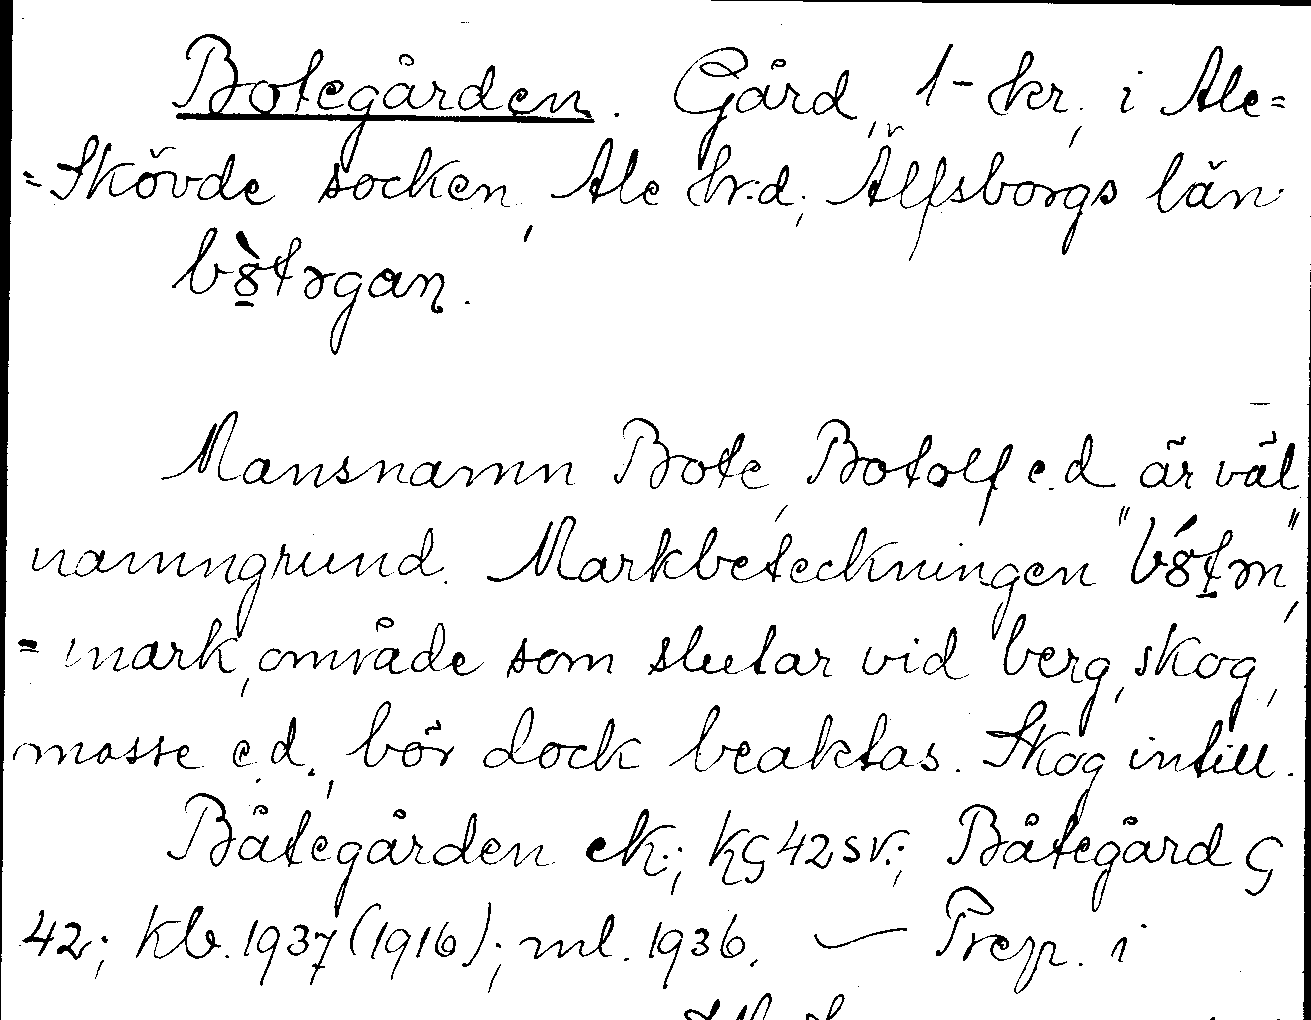 Botegården. Gård, 1-kr, i Ale=
=Skövde socken, Ale hr.d., Älfsborgs län.
Mansnamn Bote, Botolf e.d är väl
namngrund. Markbeteckningen
= mark, område som slutar vid berg, skog,
mosse e.d., bör dock beaktas. Skog intill.
Båtegården ek.; KG 42 sv.; Båtegård G
42; Kb. 1937 (1916); ml. 1936. — Prep. i